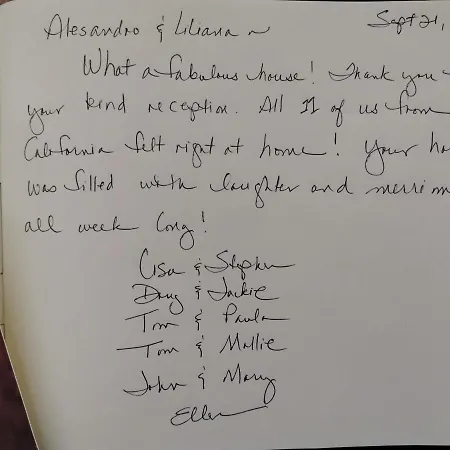 Sept 21,
Alesandro & Liliana ~
What a fabulous house! Thank you
your kind reception. All 11 of us from
California felt right at home! Your
was filled with laughter and
all week long!
Lisa & Stephen
Doug & Jackie
Tom & Paula
Tom & Mollie
John & Mary
Ellen